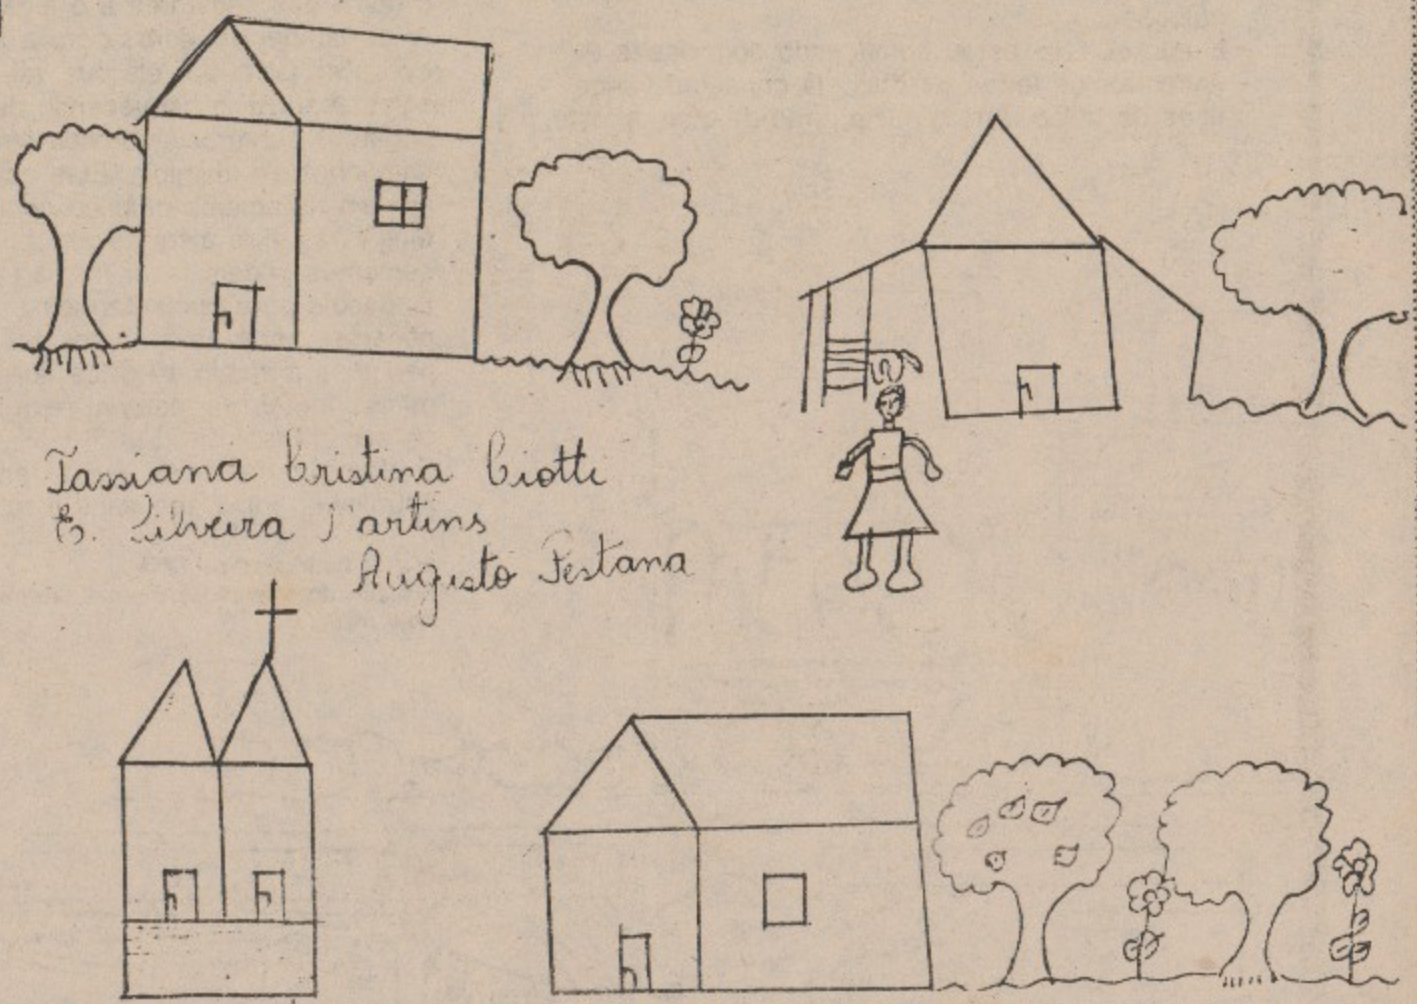 Tassiana Cristina Ciotti
E. Silveira Martins
Augusto Pestana